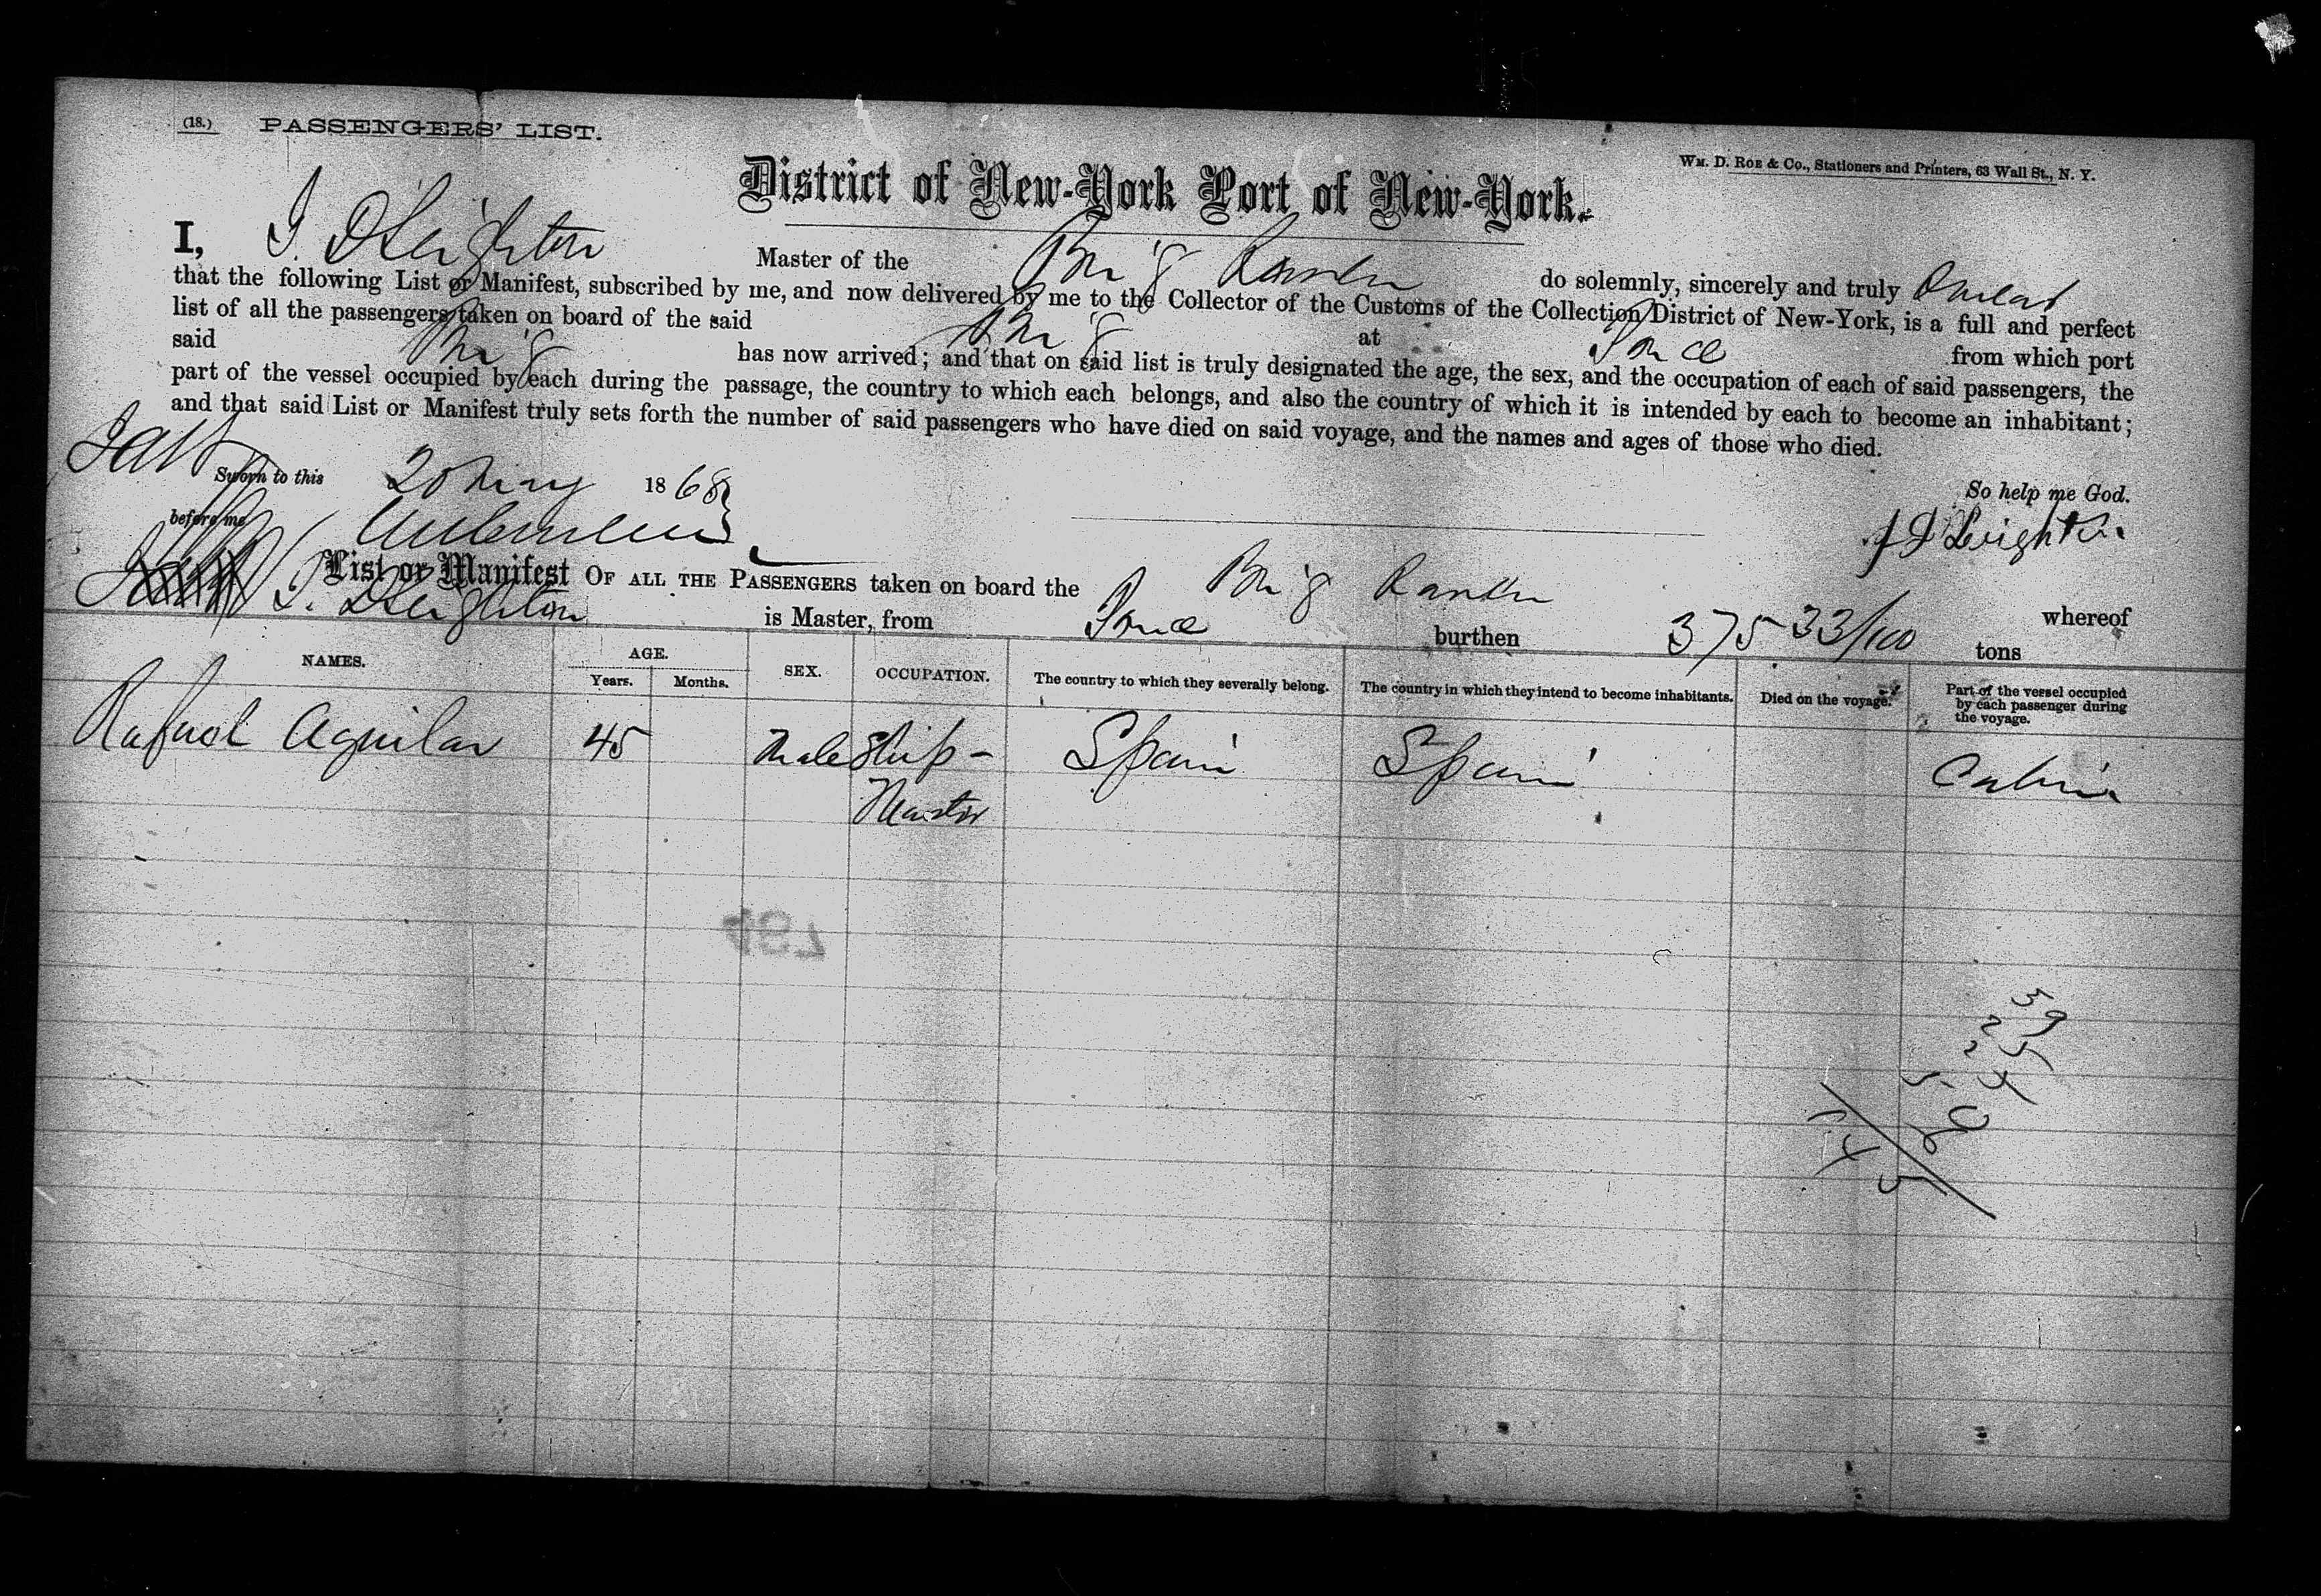 (18.) PASSENGERS' LIST.
Wm. D. Roe & Co., Stationers and Printers, 63 Wall St., N. Y.
District of New-York Port of New-York.
I, J. D Leighton Master of the Brig do solemnly, sincerely and truly
that the following List or Manifest, subscribed by me, and now delivered by me to the Collector of the Customs of the Collection District of New-York, is a full and perfect
list of all the passengers taken on board of the said Brig at Ponce from which port
said Brig has now arrived; and that on said list is truly designated the age, the sex, and the occupation of each of said passengers, the
part of the vessel occupied by each during the passage, the country to which each belongs, and also the country of which it is intended by each to become an inhabitant;
and that said List or Manifest truly sets forth the number of said passengers who have died on said voyage, and the names and ages of those who died.
Sworn to this 20 May 1868 So help me God.
before me J D Leighton
List or Manifest OF ALL THE PASSENGERS taken on board the Brig whereof
J. D Leighton is Master, from Ponce burthen 375 33/100 tons
NAMES. AGE. Years. Months. SEX. OCCUPATION. The country to which they severally belong. The country in which they intend to become inhabitants. Died on the voyage. Part of the vessel occupied by each passenger during the voyage.
Rafael Aguilar 45 Male Ship- Spain Spain Cabin
Master
487